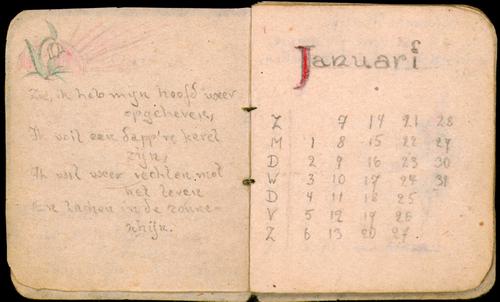 Zie, ik heb mijn hoofd weer
opgeheven,
Ik wil een dapp're kerel
zijn,
Ik wil weer vechten met
het leven
En lachen in de zonne-
schijn.
Januari
Z 7 14 21 28
M 1 8 15 22 29
D 2 9 16 23 30
W 3 10 17 24 31
D 4 11 18 25
V 5 12 19 26
Z 6 13 20 27